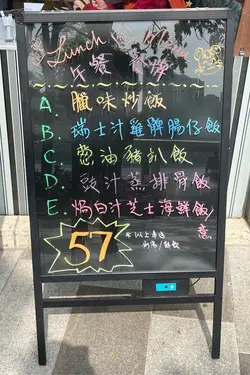 Lunch Menu
午餐餐牌
A. 臘味炒飯
B. 瑞士汁雞髀腸仔飯
C. 葱油豬扒飯
D. 豉汁蒸排骨飯
E. 焗白汁芝士海鮮飯/意
57